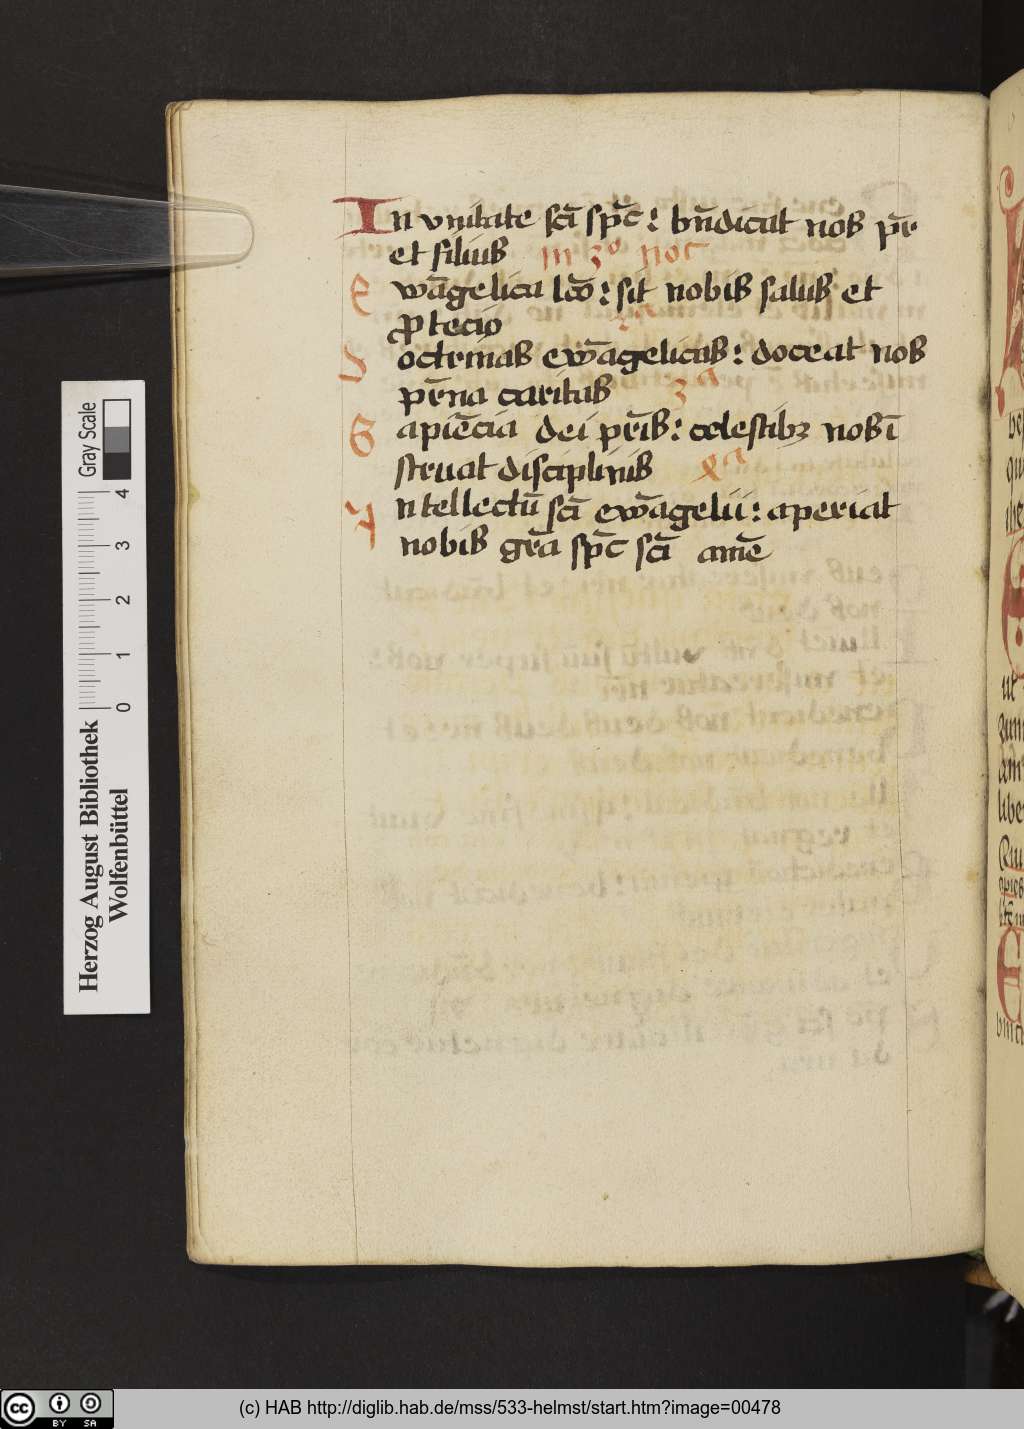 In vnitate sc̄i sp̄c : bn̄dicat nos pr̄
et filius in 3º noc
Ewāgelica lc̄o : sit nobis salus et
ꝓtecio
octrinas ewāgelicas : doceat nos
pr̄na caritas 3ª
Sapiēcia dei pr̄is : celestibꝫ nobī
struat disciplinis
Intellectū sc̄i ewāgelii : aperiat
nobis gr̄a sp̄c sc̄i amē
Gray Scale
4
3
2
1
0
Herzog August Bibliothek
Wolfenbüttel
ut
libe
cc BY SA
(c) HAB http://diglib.hab.de/mss/533-helmst/start.htm?image=00478